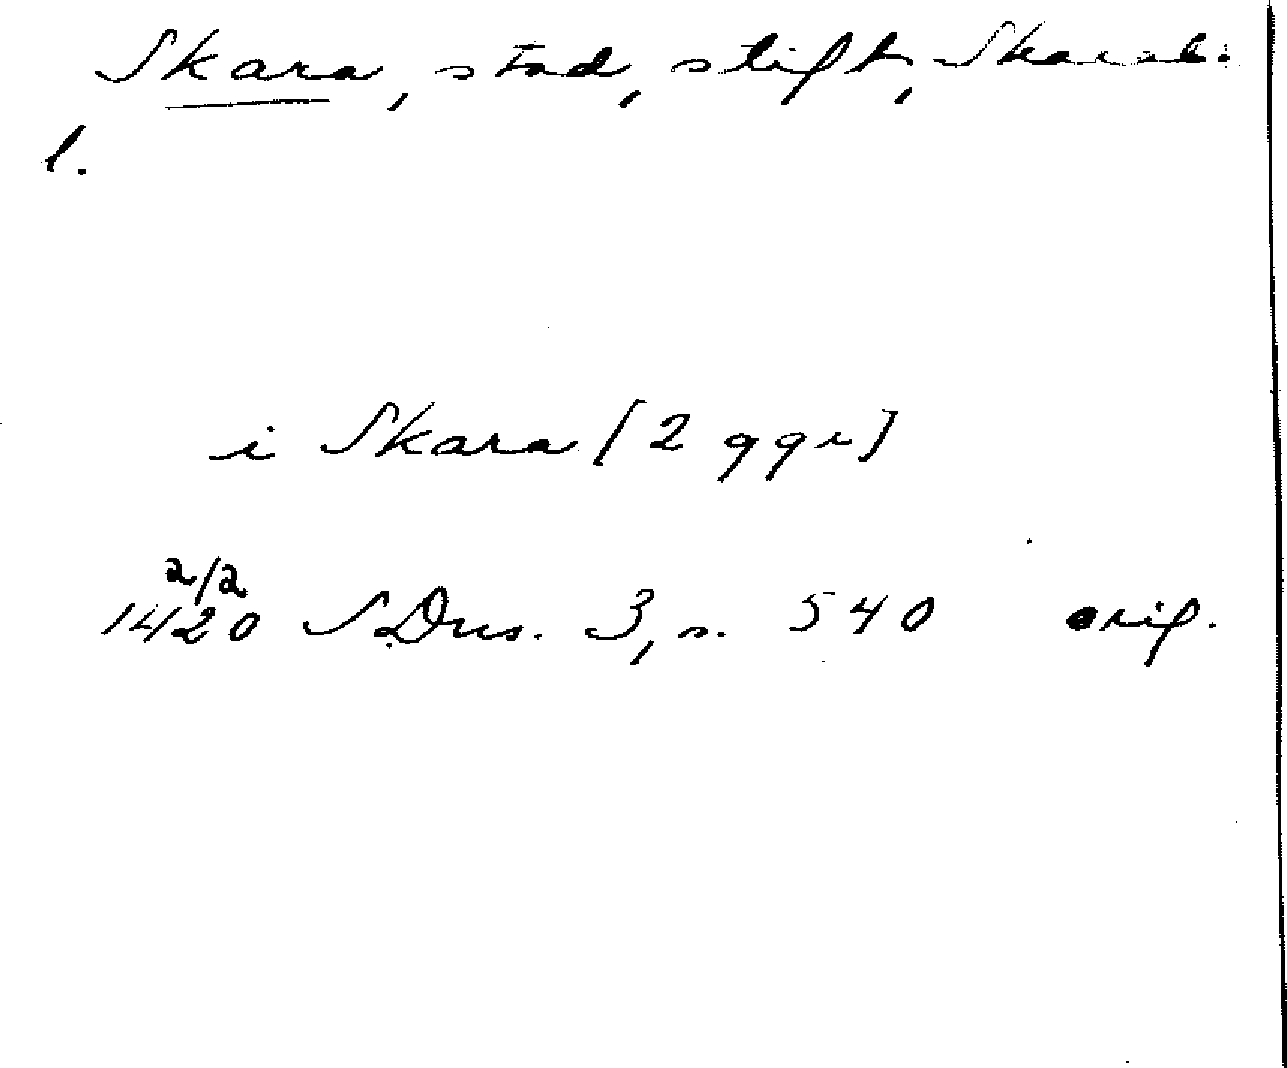 Skara, stad, stift, Skarab.
l.
i Skara [2 ggr]
2/2
1420 SDns. 3, s. 540 orig.